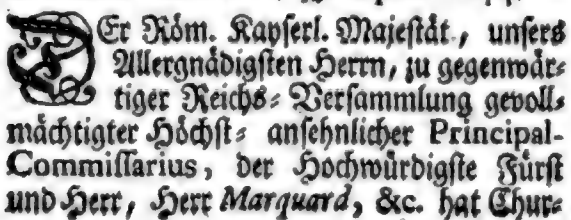 DEr Röm. Kayserl. Majestät, unsers
Allergnädigsten Herrn, zu gegenwär-
tiger Reichs-Versammlung gevoll-
mächtigter Höchst-ansehnlicher Principal-
Commissarius, der Hochwürdigste Fürst
und Herr, Herr Marquard, &c. hat Chur-